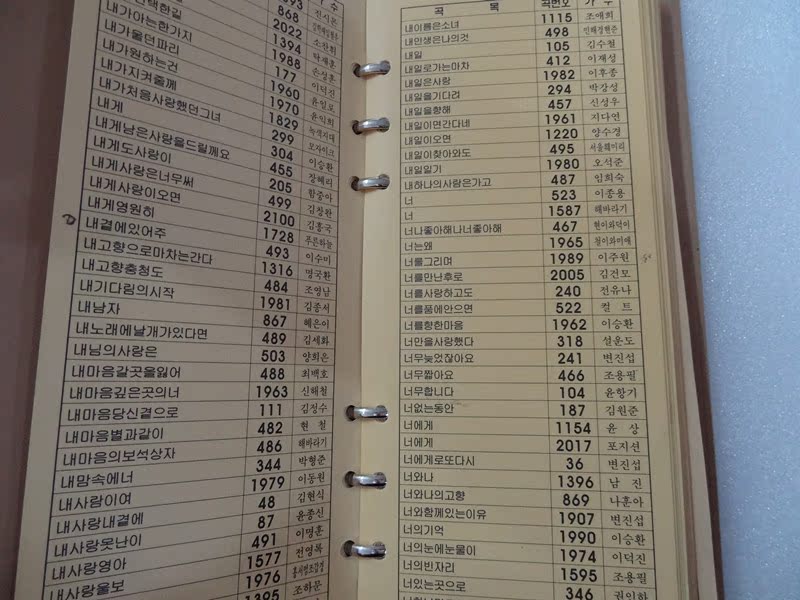 93
868
2022 소찬휘
1394 박재홍
택한길 1988 손성훈
내가아는한가지 177 이덕진
내가울던파리 1960 윤일로
내가원하는건 1970 윤익희
내가지켜줄께 1829 녹색지대
내가처음사랑했던그녀 299 모자이크
내게 304 이승환
내게남은사랑을드릴께요 455 장혜리
내게도사랑이 205 함중아
내게사랑은너무써 499 김창완
내게사랑이오면 2100 김흥국
내게영원히 1728 푸른하늘
내곁에있어주 493 이수미
내고향으로마차는간다 1316 명국환
내고향충청도 484 조영남
내기다림의시작 1981 김종서
내남자 867 혜은이
내노래에날개가있다면 489 김세화
내님의사랑은 503 양희은
내마음갈곳을잃어 488 최백호
내마음깊은곳의너 1963 신해철
내마음당신곁으로 111 김정수
내마음별과같이 482 현 철
내마음의보석상자 486 해바라기
내맘속에너 344 박형준
내사람이여 1979 이동원
내사랑내곁에 48 김현식
내사랑못난이 87 윤종신
내사랑영아 491 이명훈
내사랑울보 1577 전영록
1976 홍서범조갑경
1395 조하문
곡 목 곡번호 가 수
내이름은소녀 1115 조애희
내인생은나의것 498 민해경현준
내일 105 김수철
내일로가는마차 412 이재성
내일은사랑 1982 이후종
내일을기다려 294 박강성
내일을향해 457 신성우
내일이면간다네 1961 지다연
내일이오면 1220 양수경
내일이찾아와도 495 서울훼미리
내일일기 1980 오석준
내하나의사랑은가고 487 임희숙
너 523 이종용
너 1587 해바라기
너나좋아해나너좋아해 467 현이와덕이
너는왜 1965 철이와미애
너를그리며 1989 이주원
너를만난후로 2005 김건모
너를사랑하고도 240 전유나
너를품에안으면 522 컬 트
너를향한마음 1962 이승환
너만을사랑했다 318 설운도
너무늦었잖아요 241 변진섭
너무짧아요 466 조용필
너무합니다 104 윤항기
너없는동안 187 김원준
너에게 1154 윤 상
너에게 2017 포지션
너에게로또다시 36 변진섭
너와나 1396 남 진
너와나의고향 869 나훈아
너와함께있는이유 1907 변진섭
너의기억 1990 이승환
너의눈에눈물이 1974 이덕진
너의빈자리 1595 조용필
너있는곳으로 346 권인하